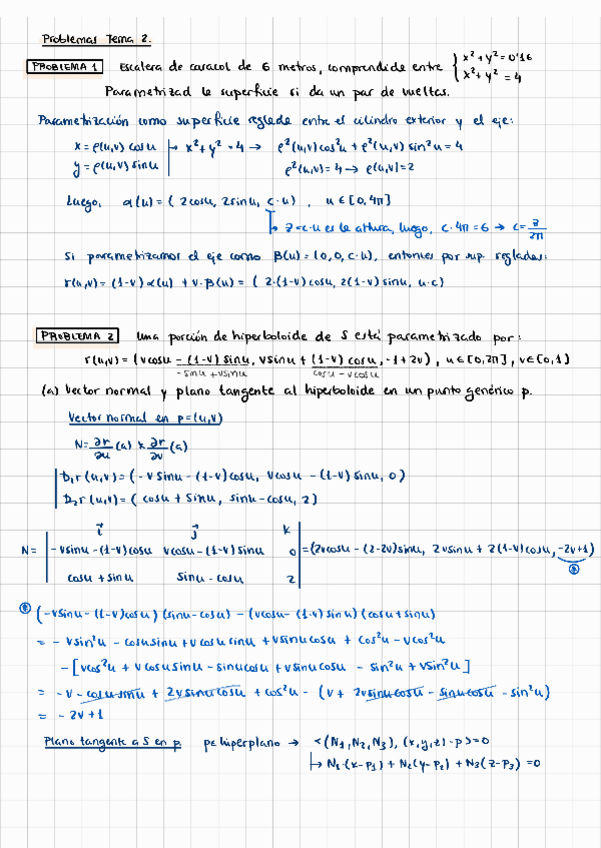 Problemas Tema 2.
PROBLEMA 1 Escalera de caracol de 6 metros, comprendida entre { x² + y² = 0'16
x² + y² = 4
Parametrizad la superficie si da un par de vueltas.
Parametrización como superficie reglada entre el cilindro exterior y el eje:
x = ρ(u,v) cosu
y = ρ(u,v) sinu
x² + y² = 4 → ρ²(u,v) cos²u + ρ²(u,v) sin²u = 4
ρ²(u,v) = 4 → ρ(u,v) = 2
Luego, α(u) = (2cosu, 2sinu, c·u), u ∈ [0, 4π]
↳ z = c·u es la altura, luego, c·4π = 6 → c = 3/2π
Si parametrizamos el eje como β(u) = (0, 0, c·u), entonces por sup. regladas:
r(u,v) = (1-v) α(u) + v·β(u) = (2·(1-v) cosu, 2(1-v) sinu, u·c)
PROBLEMA 2 Una porción de hiperboloide de S está parametrizado por:
r(u,v) = (v cosu - (1-v) sinu, v sinu + (1-v) cosu, -1+2v), u ∈ [0,2π], v ∈ [0,1]
-sinu + vsinu cosu - vcosu
(a) Vector normal y plano tangente al hiperboloide en un punto genérico p.
Vector normal en p=(u,v)
N = ∂r/∂u (a) × ∂r/∂v (a)
D₁r(u,v) = (-v sinu - (1-v) cosu, v cosu - (1-v) sinu, 0)
D₂r(u,v) = (cosu + sinu, sinu - cosu, 2)
i j k
N = | -vsinu - (1-v) cosu vcosu - (1-v) sinu 0 | = (2vcosu - (2-2v) sinu, 2v sinu + 2(1-v) cosu, -2v+1)
cosu + sinu sinu - cosu 2
⊛ (-vsinu - (1-v) cosu) (sinu - cosu) - (vcosu - (1-v) sinu) (cosu + sinu)
= - vsin²u - cosu sinu + v cosu sinu + vsinu cosu + cos²u - vcos²u
- [vcos²u + v cosu sinu - sinu cosu + vsinu cosu - sin²u + vsin²u]
= -v - cosu sinu + 2v sinu cosu + cos²u - (v + 2v sinu cosu - sinu cosu - sin²u)
= -2v + 1
Plano tangente a S en p p ∈ hiperplano → <(N₁,N₂,N₃), (x,y,z) - p> = 0
↳ N₁·(x-p₁) + N₂(y-p₂) + N₃(z-p₃) = 0